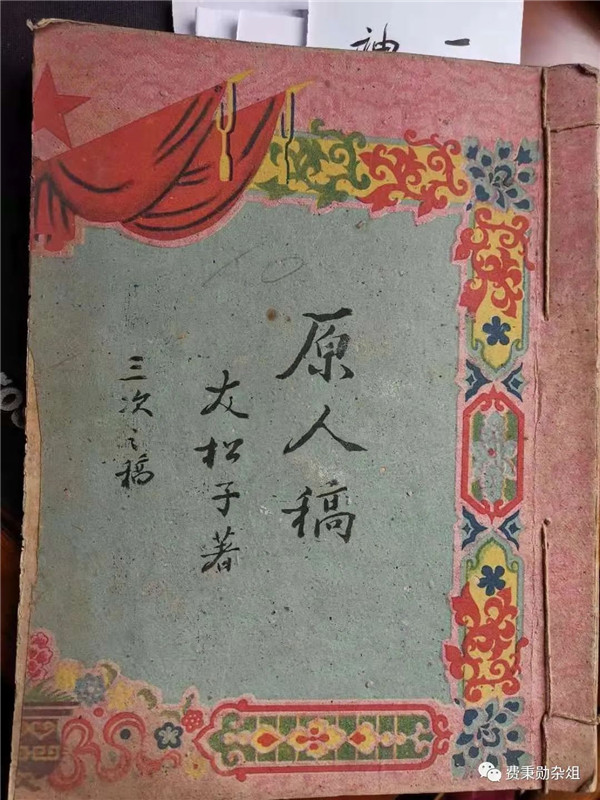 一
神
原人稿
友松子著
三次之稿
费秉勋杂俎